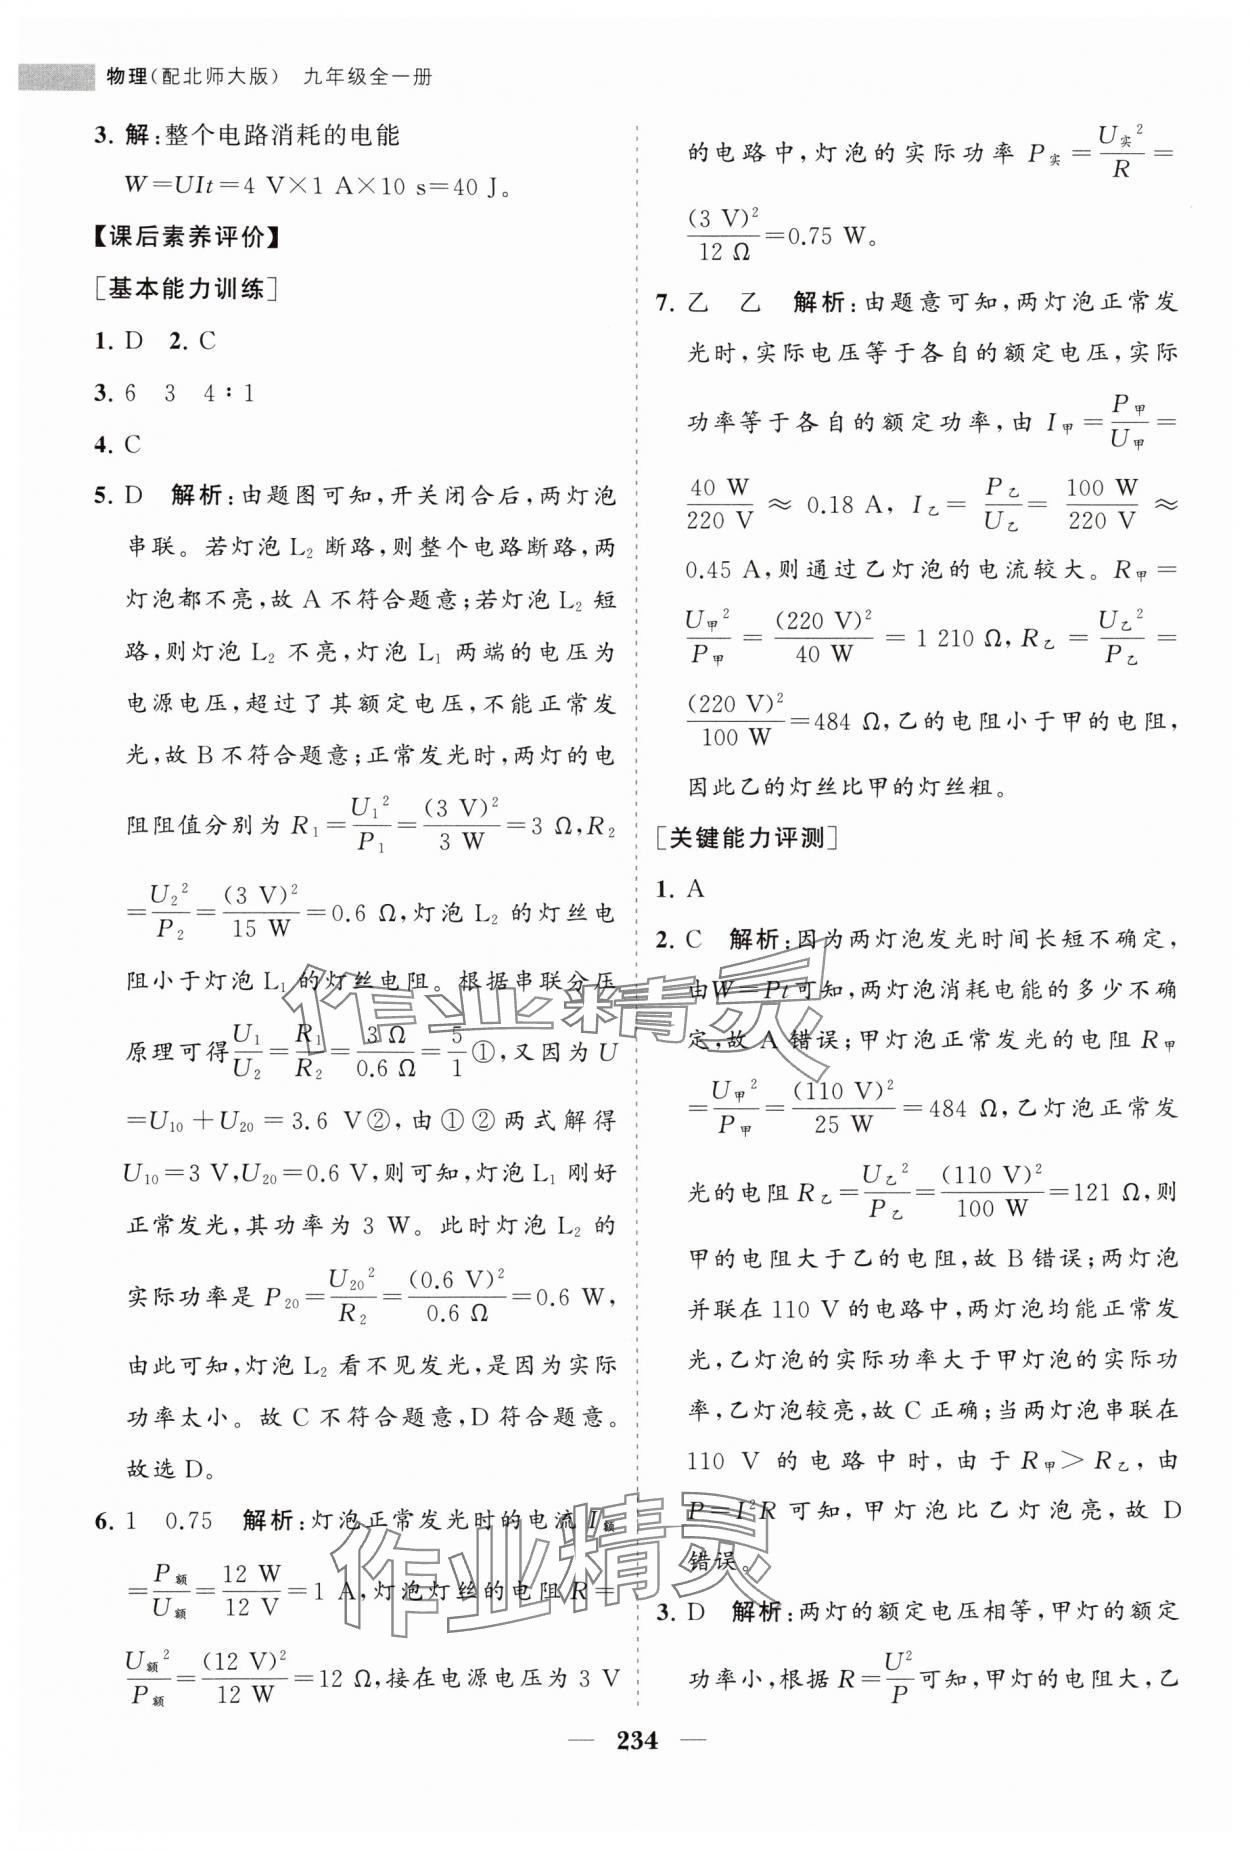 物理(配北师大版)　九年级全一册
3. 解:整个电路消耗的电能
W=UIt=4 V×1 A×10 s=40 J。
【课后素养评价】
[基本能力训练]
1. D　2. C
3. 6　3　4∶1
4. C
5. D　解析:由题图可知,开关闭合后,两灯泡
串联。若灯泡 L₂ 断路,则整个电路断路,两
灯泡都不亮,故 A 不符合题意;若灯泡 L₂ 短
路,则灯泡 L₂ 不亮,灯泡 L₁ 两端的电压为
电源电压,超过了其额定电压,不能正常发
光,故 B 不符合题意;正常发光时,两灯的电
阻阻值分别为 R₁=U₁²/P₁=(3 V)²/3 W=3 Ω,R₂
=U₂²/P₂=(3 V)²/15 W=0.6 Ω,灯泡 L₂ 的灯丝电
阻小于灯泡 L₁ 的灯丝电阻。根据串联分压
原理可得U₁/U₂=R₁/R₂=3 Ω/0.6 Ω=5/1①,又因为 U
=U₁₀+U₂₀=3.6 V②,由①②两式解得
U₁₀=3 V,U₂₀=0.6 V,则可知,灯泡 L₁ 刚好
正常发光,其功率为 3 W。此时灯泡 L₂ 的
实际功率是 P₂₀=U₂₀²/R₂=(0.6 V)²/0.6 Ω=0.6 W,
由此可知,灯泡 L₂ 看不见发光,是因为实际
功率太小。故 C 不符合题意,D 符合题意。
故选 D。
6. 1　0.75　解析:灯泡正常发光时的电流 I额
=P额/U额=12 W/12 V=1 A,灯泡灯丝的电阻 R=
U额²/P额=(12 V)²/12 W=12 Ω,接在电源电压为 3 V
的电路中,灯泡的实际功率 P实=U实²/R=
(3 V)²/12 Ω=0.75 W。
7. 乙　乙　解析:由题意可知,两灯泡正常发
光时,实际电压等于各自的额定电压,实际
功率等于各自的额定功率,由 I甲=P甲/U甲=
40 W/220 V≈0.18 A,I乙=P乙/U乙=100 W/220 V≈
0.45 A,则通过乙灯泡的电流较大。R甲=
U甲²/P甲=(220 V)²/40 W=1 210 Ω,R乙=U乙²/P乙=
(220 V)²/100 W=484 Ω,乙的电阻小于甲的电阻,
因此乙的灯丝比甲的灯丝粗。
[关键能力评测]
1. A
2. C　解析:因为两灯泡发光时间长短不确定,
由W=Pt可知,两灯泡消耗电能的多少不确
定,故 A 错误;甲灯泡正常发光的电阻 R甲
=U甲²/P甲=(110 V)²/25 W=484 Ω,乙灯泡正常发
光的电阻 R乙=U乙²/P乙=(110 V)²/100 W=121 Ω,则
甲的电阻大于乙的电阻,故 B 错误;两灯泡
并联在 110 V 的电路中,两灯泡均能正常发
光,乙灯泡的实际功率大于甲灯泡的实际功
率,乙灯泡较亮,故 C 正确;当两灯泡串联在
110 V 的电路中时,由于 R甲>R乙,由
P=I²R 可知,甲灯泡比乙灯泡亮,故 D
错误。
3. D　解析:两灯的额定电压相等,甲灯的额定
功率小,根据 R=U²/P可知,甲灯的电阻大,乙
— 234 —
作业精灵
作业精灵